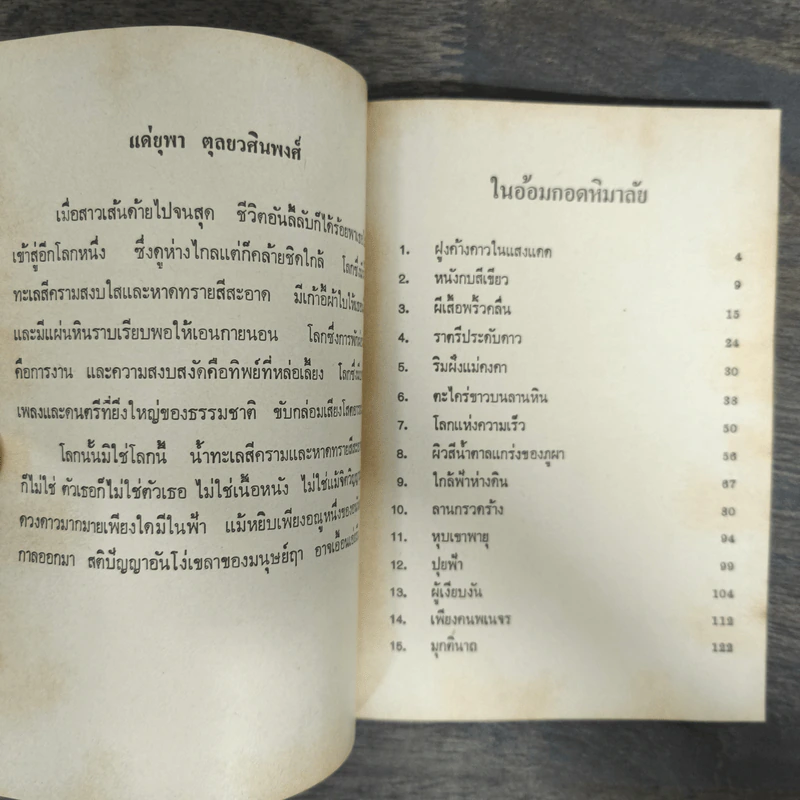 แด่ยุพา ตุลยวศินพงศ์
เมื่อสาวเส้นด้ายไปจนสุด ชีวิตอันลี้ลับก็ได้
เข้าสู่อีกโลกหนึ่ง ซึ่งดูห่างไกลแต่ก็คล้ายชิดใกล้
ทะเลสีครามสงบใสและหาดทรายสีสะอาด มีเก้าอี้ผ้าใบ
และมีแผ่นหินราบเรียบพอให้เอนกายนอน โลกซึ่งการ
คือการงาน และความสงบสงัดคือทิพย์ที่หล่อเลี้ยง
เพลงและดนตรีที่ยิ่งใหญ่ของธรรมชาติ ขับกล่อมเสียง
โลกนั้นมิใช่โลกนี้ น้ำทะเลสีครามและหาดทราย
ก็ไม่ใช่ ตัวเธอก็ไม่ใช่ตัวเธอ ไม่ใช่เนื้อหนัง ไม่ใช่แม้
ดวงดาวมากมายเพียงใดมีในฟ้า แม้หยิบเพียงอณูหนึ่ง
กาลออกมา สติปัญญาอันโง่เขลาของมนุษย์ฤา
ในอ้อมกอดหิมาลัย
1. ฝูงค้างคาวในแสงแดด 4
2. หนังกบสีเขียว 9
3. ผีเสื้อพริ้วคลื่น 15
4. ราตรีประดับดาว 24
5. ริมฝั่งแม่คงคา 30
6. ตะไคร่ขาวบนลานหิน 38
7. โลกแห่งความเร็ว 50
8. ผิวสีน้ำตาลแกร่งของภูผา 56
9. ใกล้ฟ้าห่างดิน 67
10. ลานกรวดร้าง 80
11. หุบเขาพายุ 94
12. ปุยฟ้า 99
13. ผู้เงียบงัน 104
14. เพียงคนพเนจร 112
15. มุกตินาถ 122